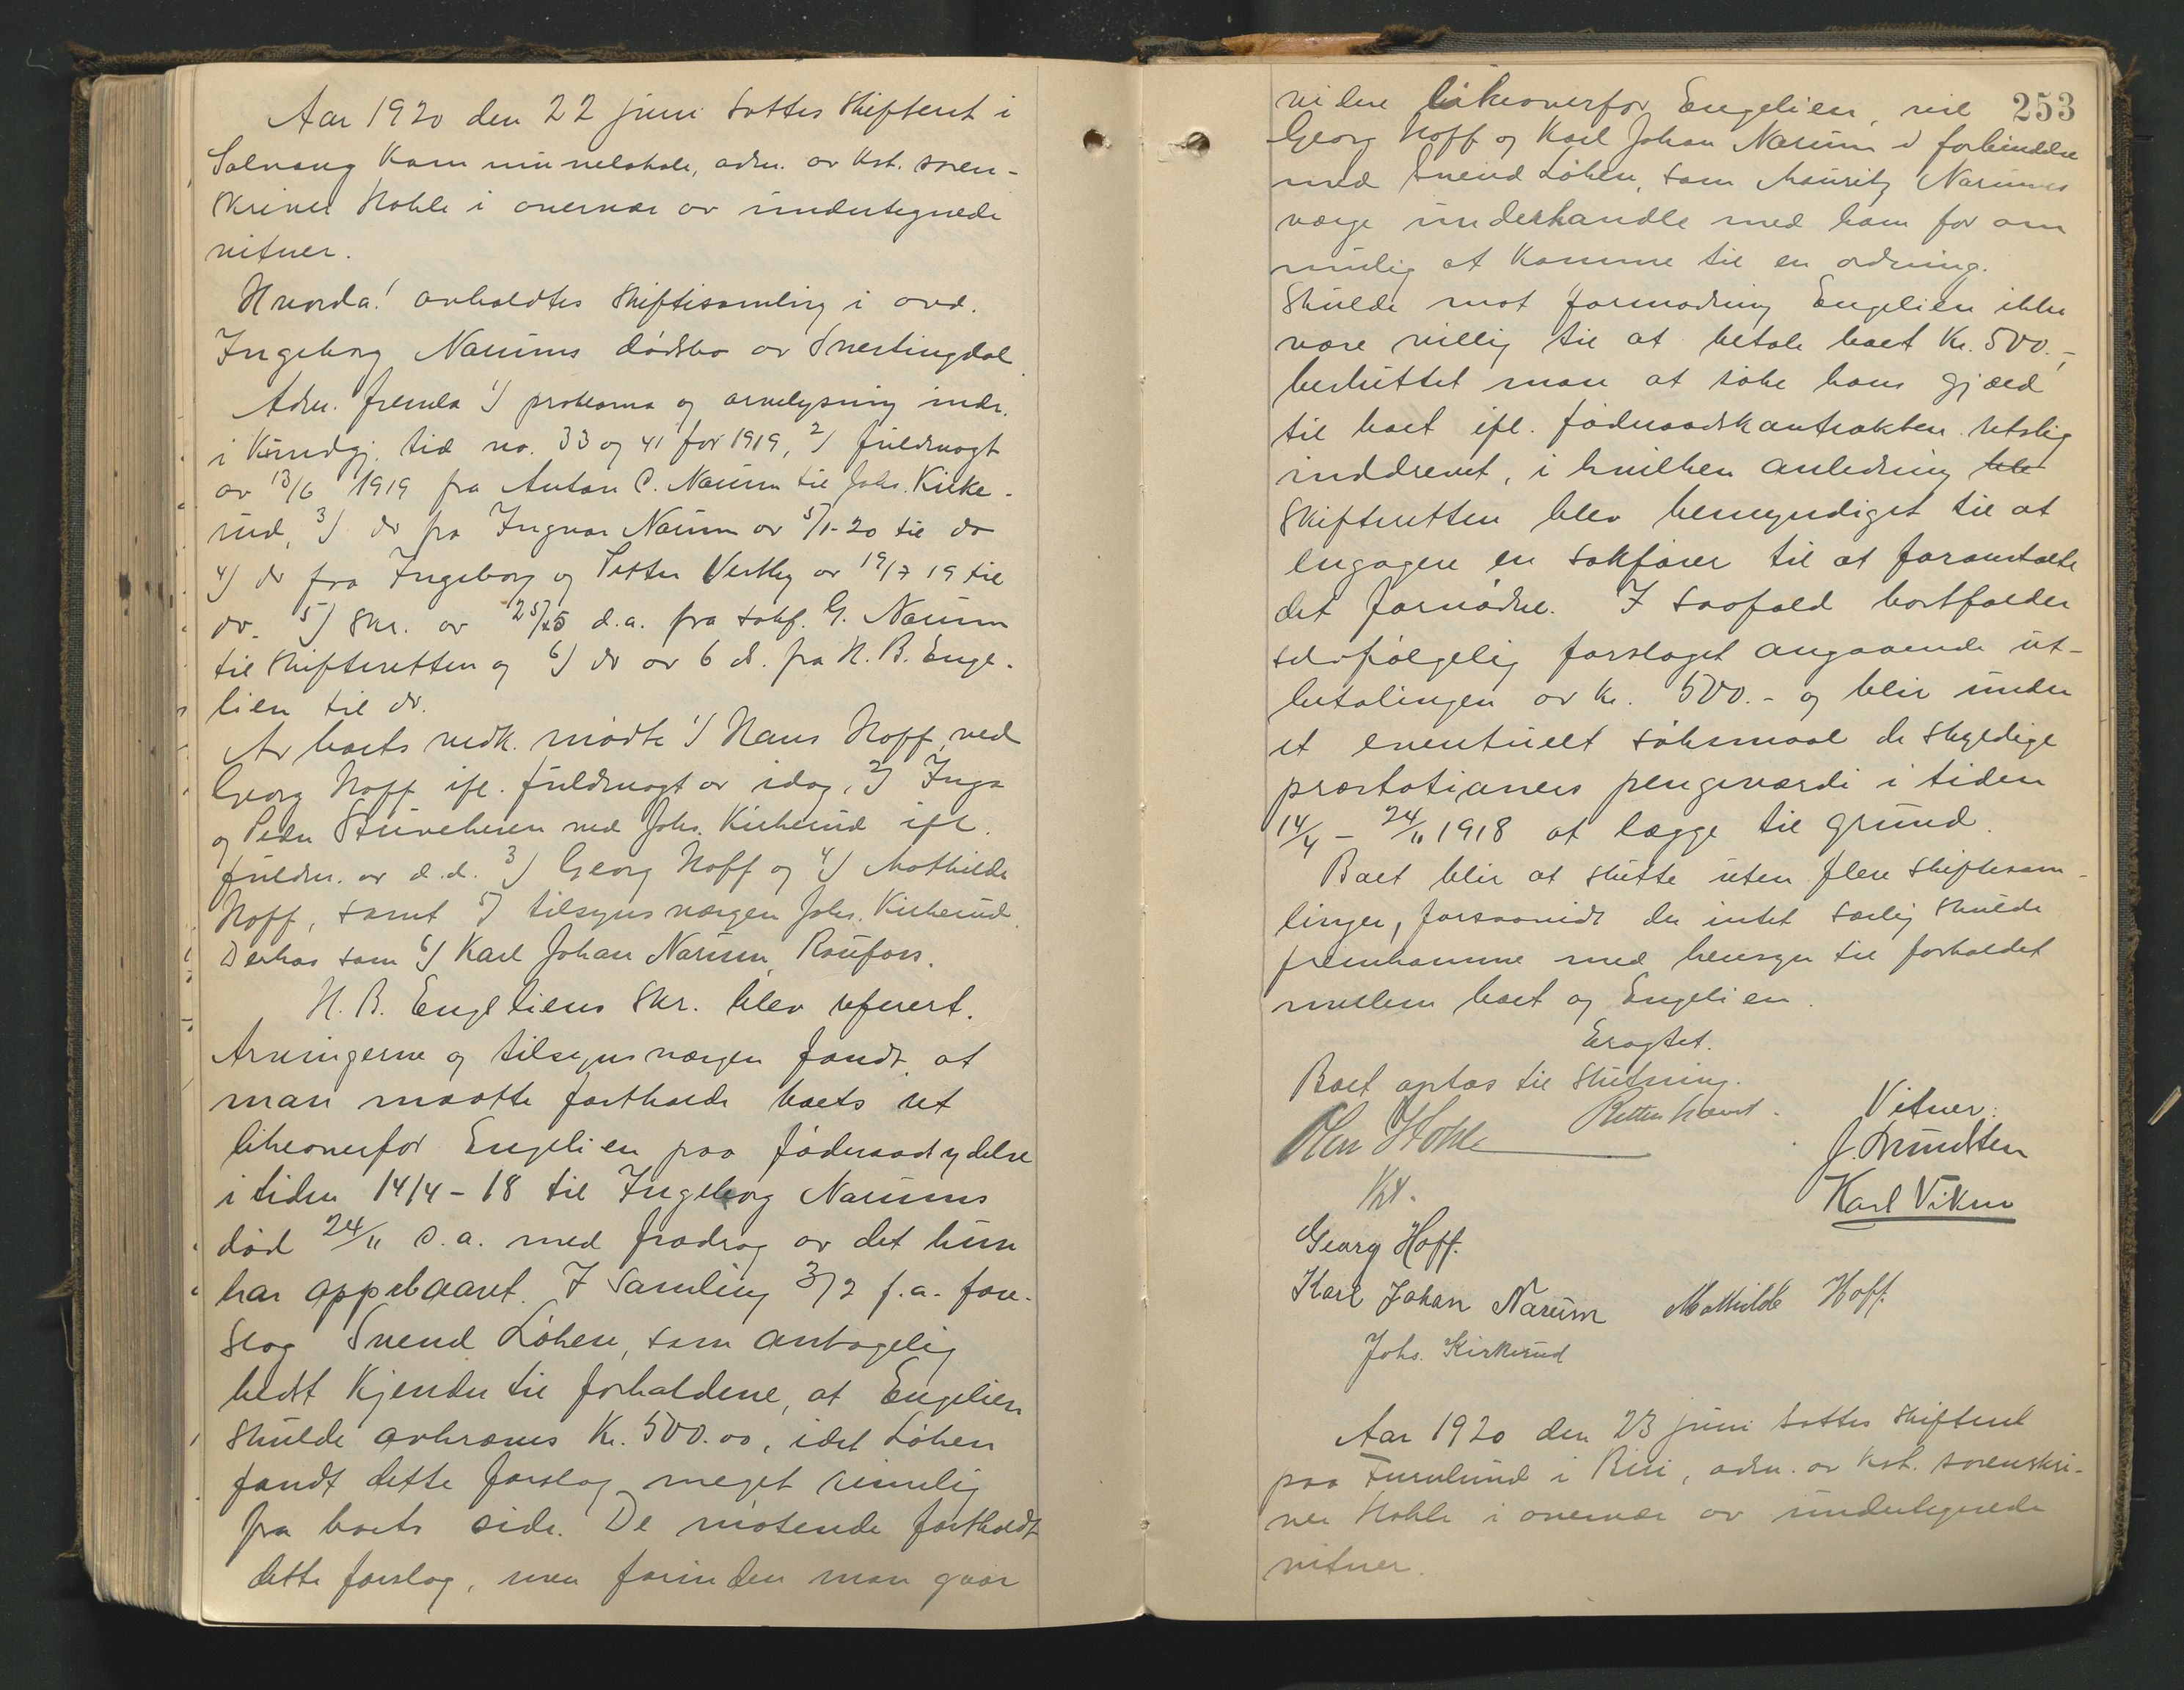 Aar 1920 den 22 juni sattes skifteret i
Solvang kommunelokale, adm. av kst. soren-
skriver Hohle i overvær av undertegnede
vitner.
Hvorda! avholdtes skiftesamling i avd.
Ingeborg Narums dødsbo av Snertingdal.
Adm. fremla 1) proklama og arvelysning indr.
i Kundgj. tid. no. 33 og 41 for 1919, 2) fuldmagt
av 13/6 1919 fra Anton C. Narum til Johs. Kirke-
rud, 3) do fra Ingvar Narum av 5/1-20 til do
4) do fra Ingeborg og Petter Vestby av 19/7 19 til
do. 5) skr. av d.a. fra sakf. G. Narum
til skifteretten og 6) do av 6 ds. fra H. B. Enge-
lien til do.
Av boets vedk. mødte 1) Hans Hoff ved
Georg Hoff ifl. fuldmagt av idag, 2) Inga
og Peder Stuveheren ved Johs. Kirkerud ifl.
fuldm. av d.d. 3) Georg Hoff og 4) Mathilde
Hoff, samt 5) tilsynsværgen Johs. Kirkerud.
Derhos som 6) Karl Johan Narum, Raufoss.
H. B. Engeliens skr. blev referert.
Arvingerne og tilsynsværgen fandt, at
man maatte fastholde boets ret
likeoverfor Engelien paa føderaadsydelse
i tiden 14/4-18 til Ingeborg Narums
død 24/11 s.a. med fradrag av det hun
har oppebaaret. I samling 3/2 f.a. fore-
slog Svend Løken, som antagelig
bedst kjender til forholdene, at Engelien
skulde avkræves Kr. 500.00, idet Løken
fandt dette forslag meget rimelig
fra boets side. De møtende fastholdt
dette forslag, men forinden man gaar
253
videre likeoverfor Engelien, vil
Georg Hoff og Karl Johan Narum i forbindelse
med Svend Løken, som Mauritz Narums
værge underhandle med ham for om
mulig at komme til en ordning.
Skulde mot formodning Engelien ikke
være villig til at betale boet Kr. 500.-,
besluttet man at søke hans gjæld
til boet ifl. føderaadskontrakten retslig
inddrevet, i hvilken anledning ble
skifteretten blev bemyndiget til at
engagere en sakfører til at foranstalte
det fornødne. I saafald bortfalder
selvfølgelig forslaget angaaende ut-
betalingen av Kr. 500.- og blir under
et eventuelt søksmaal de skyldige
præstationers pengeværdi i tiden
14/4 - 24/11 1918 at lægge til grund.
Boet blir at slutte uten flere skiftesam-
linger, forsaavidt der intet særlig skulde
fremkomme med hensyn til forholdet
mellem boet og Engelien.
Eragtet.
Boet optas til slutning.
Retten hævet.
Vitner:
Hohle
J. Smedsten
Kst.
Karl Viken
Georg Hoff.
Karl Johan Narum Mathilde Hoff.
Johs. Kirkerud
Aar 1920 den 23 juni sattes skifteret
paa Furulund i Biri, adm. av kst. sorenskri-
ver Hohle i overvær av undertegnede
vitner.